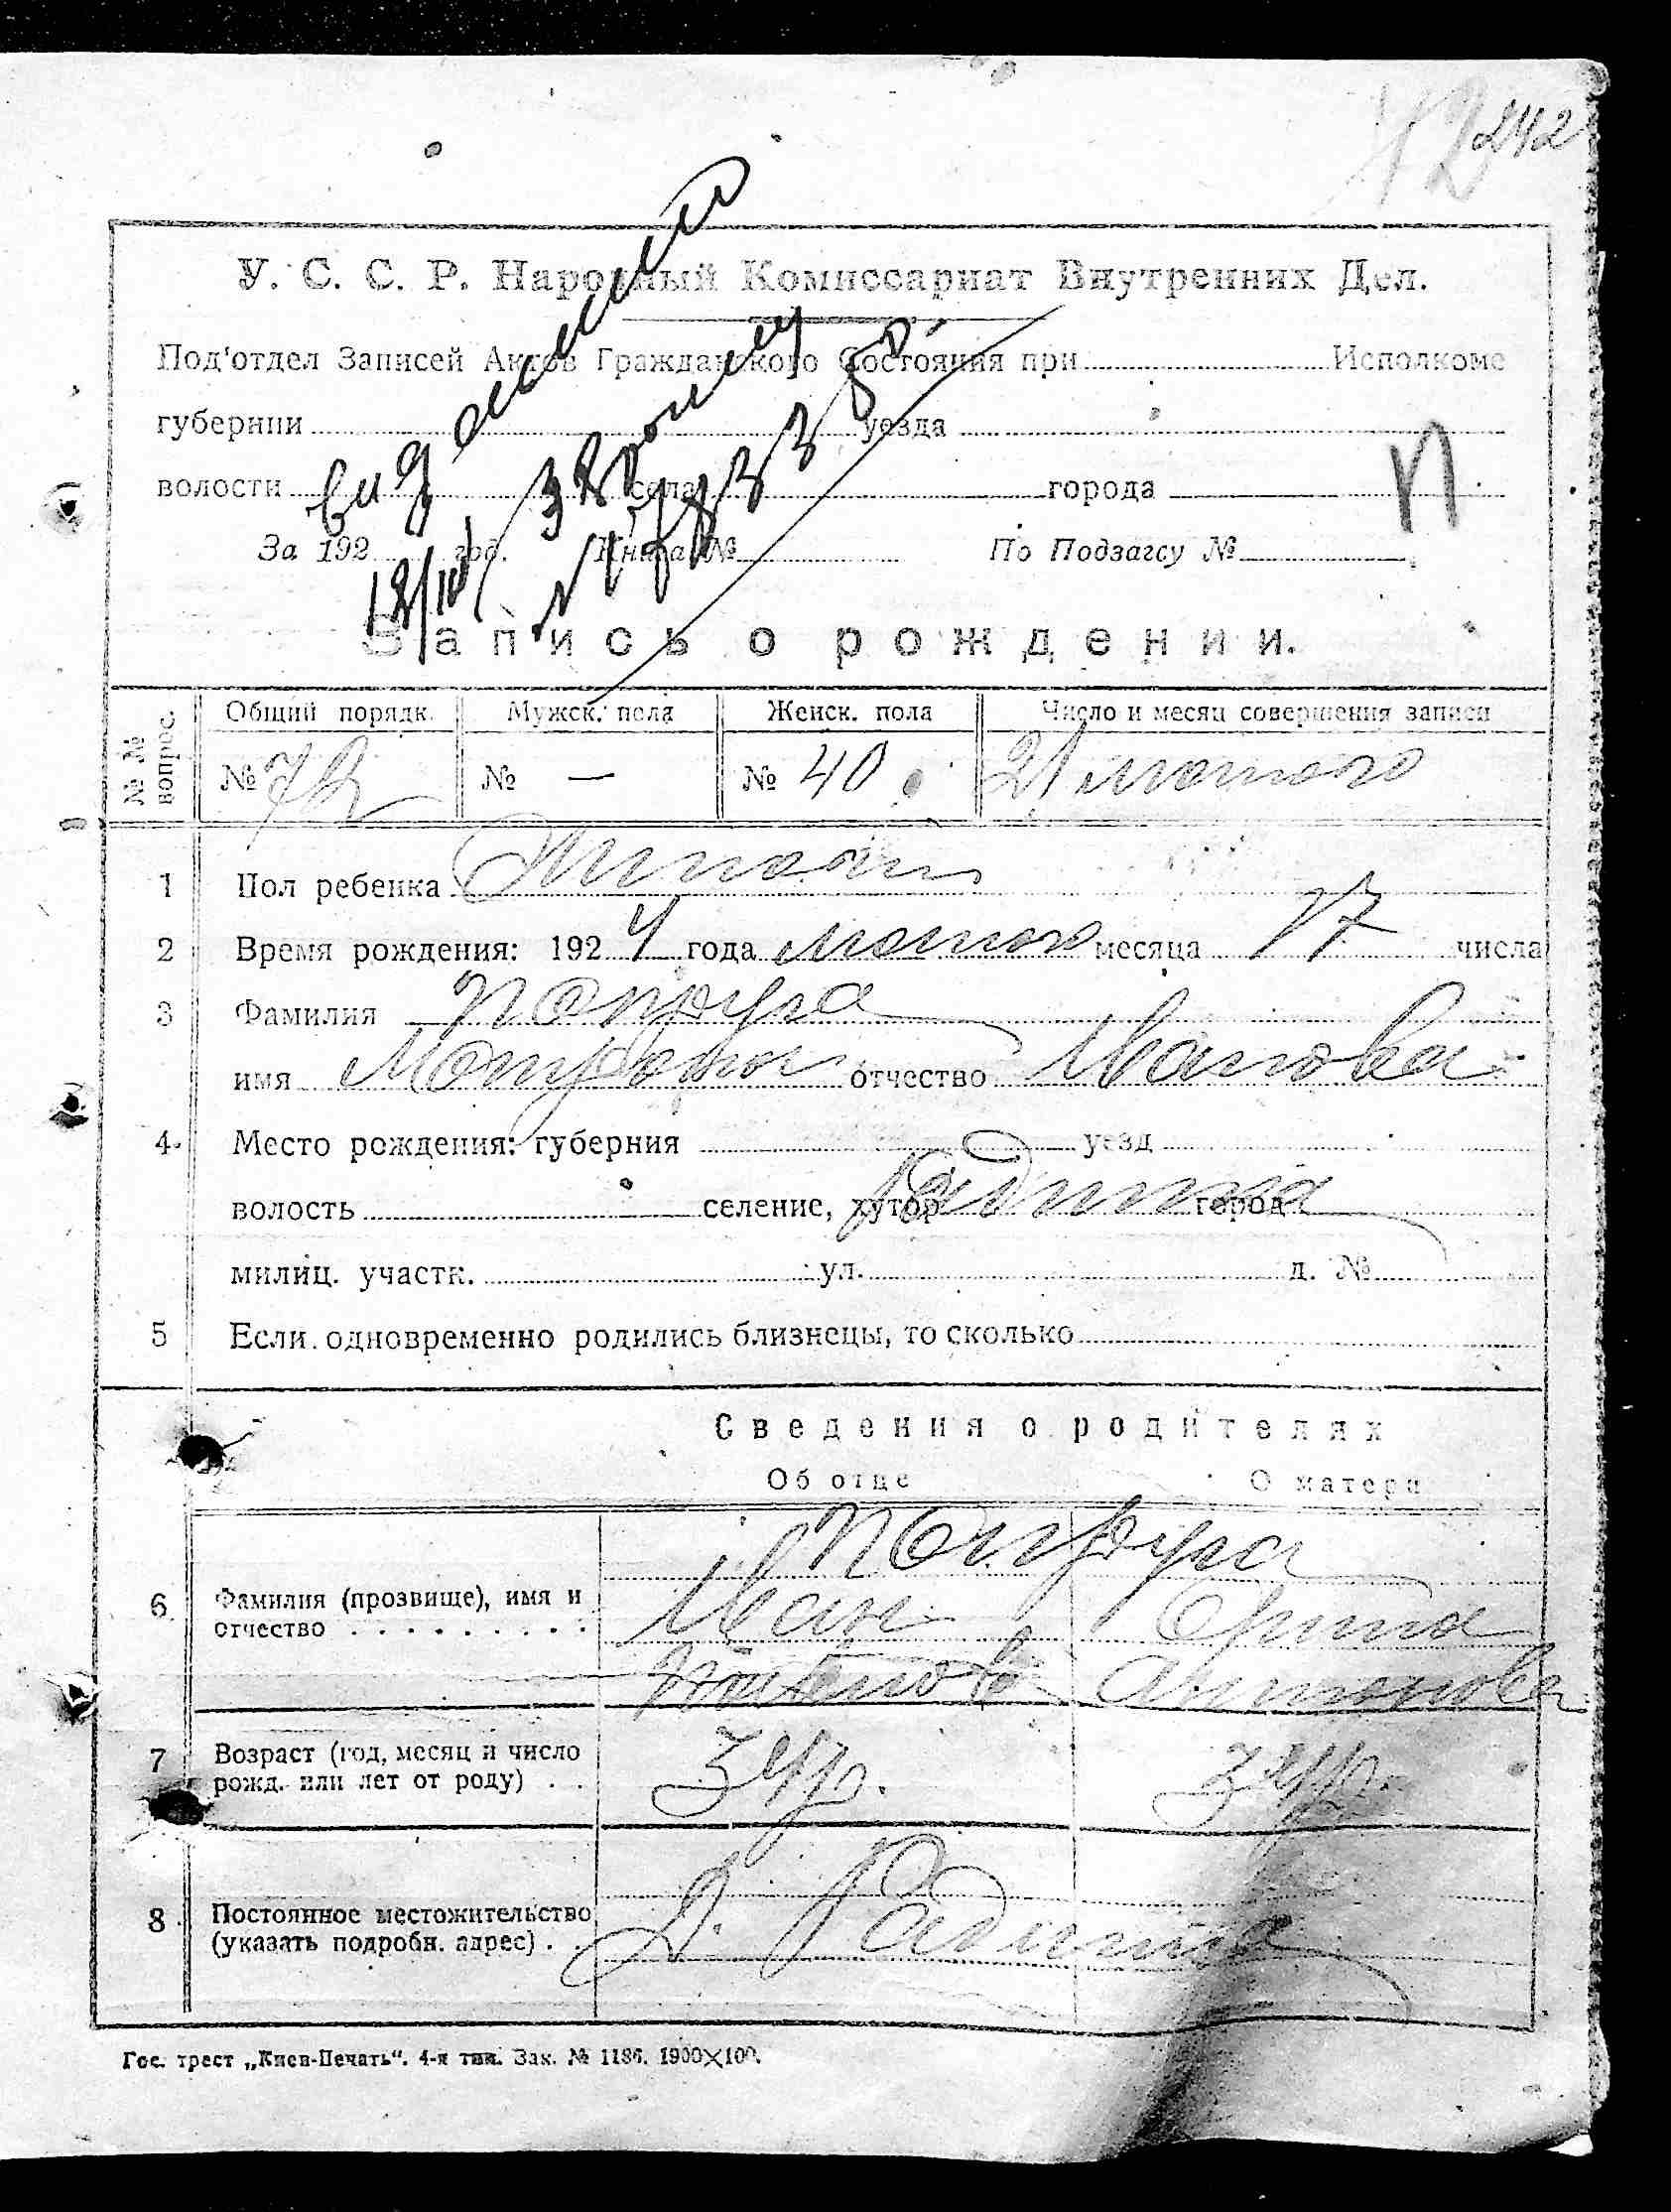 242
У. С. С. Р. Народный Комиссариат Внутренних Дел.
Под'отдел Записей Актов Гражданского Состояния при Исполкоме
губернии уезда
волости села города
П
За 192 год. Книга № По Подзагсу №
Запись о рождении.
№ № вопрос. Общий порядк. Мужск. пола Женск. пола Число и месяц совершения записи
№ 72 № — № 40 21 лютого
1 Пол ребенка Жиноч
2 Время рождения: 1924 года лютого месяца 17 числа
3 Фамилия Попруга
имя Мотрона отчество Иванова
4 Место рождения: губерния уезд
волость селение, хутор город
милиц. участк. ул. д. №
5 Если одновременно родились близнецы, то сколько
Сведения о родителях
Об отце О матери
Попруга
6 Фамилия (прозвище), имя и отчество Иван Орина
Антонова
7 Возраст (год, месяц и число рожд. или лет от роду) 34 р. 34 р.
8 Постоянное местожительство (указать подробн. адрес)
Гос. трест „Киев-Печать“. 4-я тип. Зак. № 1186. 1900×100.